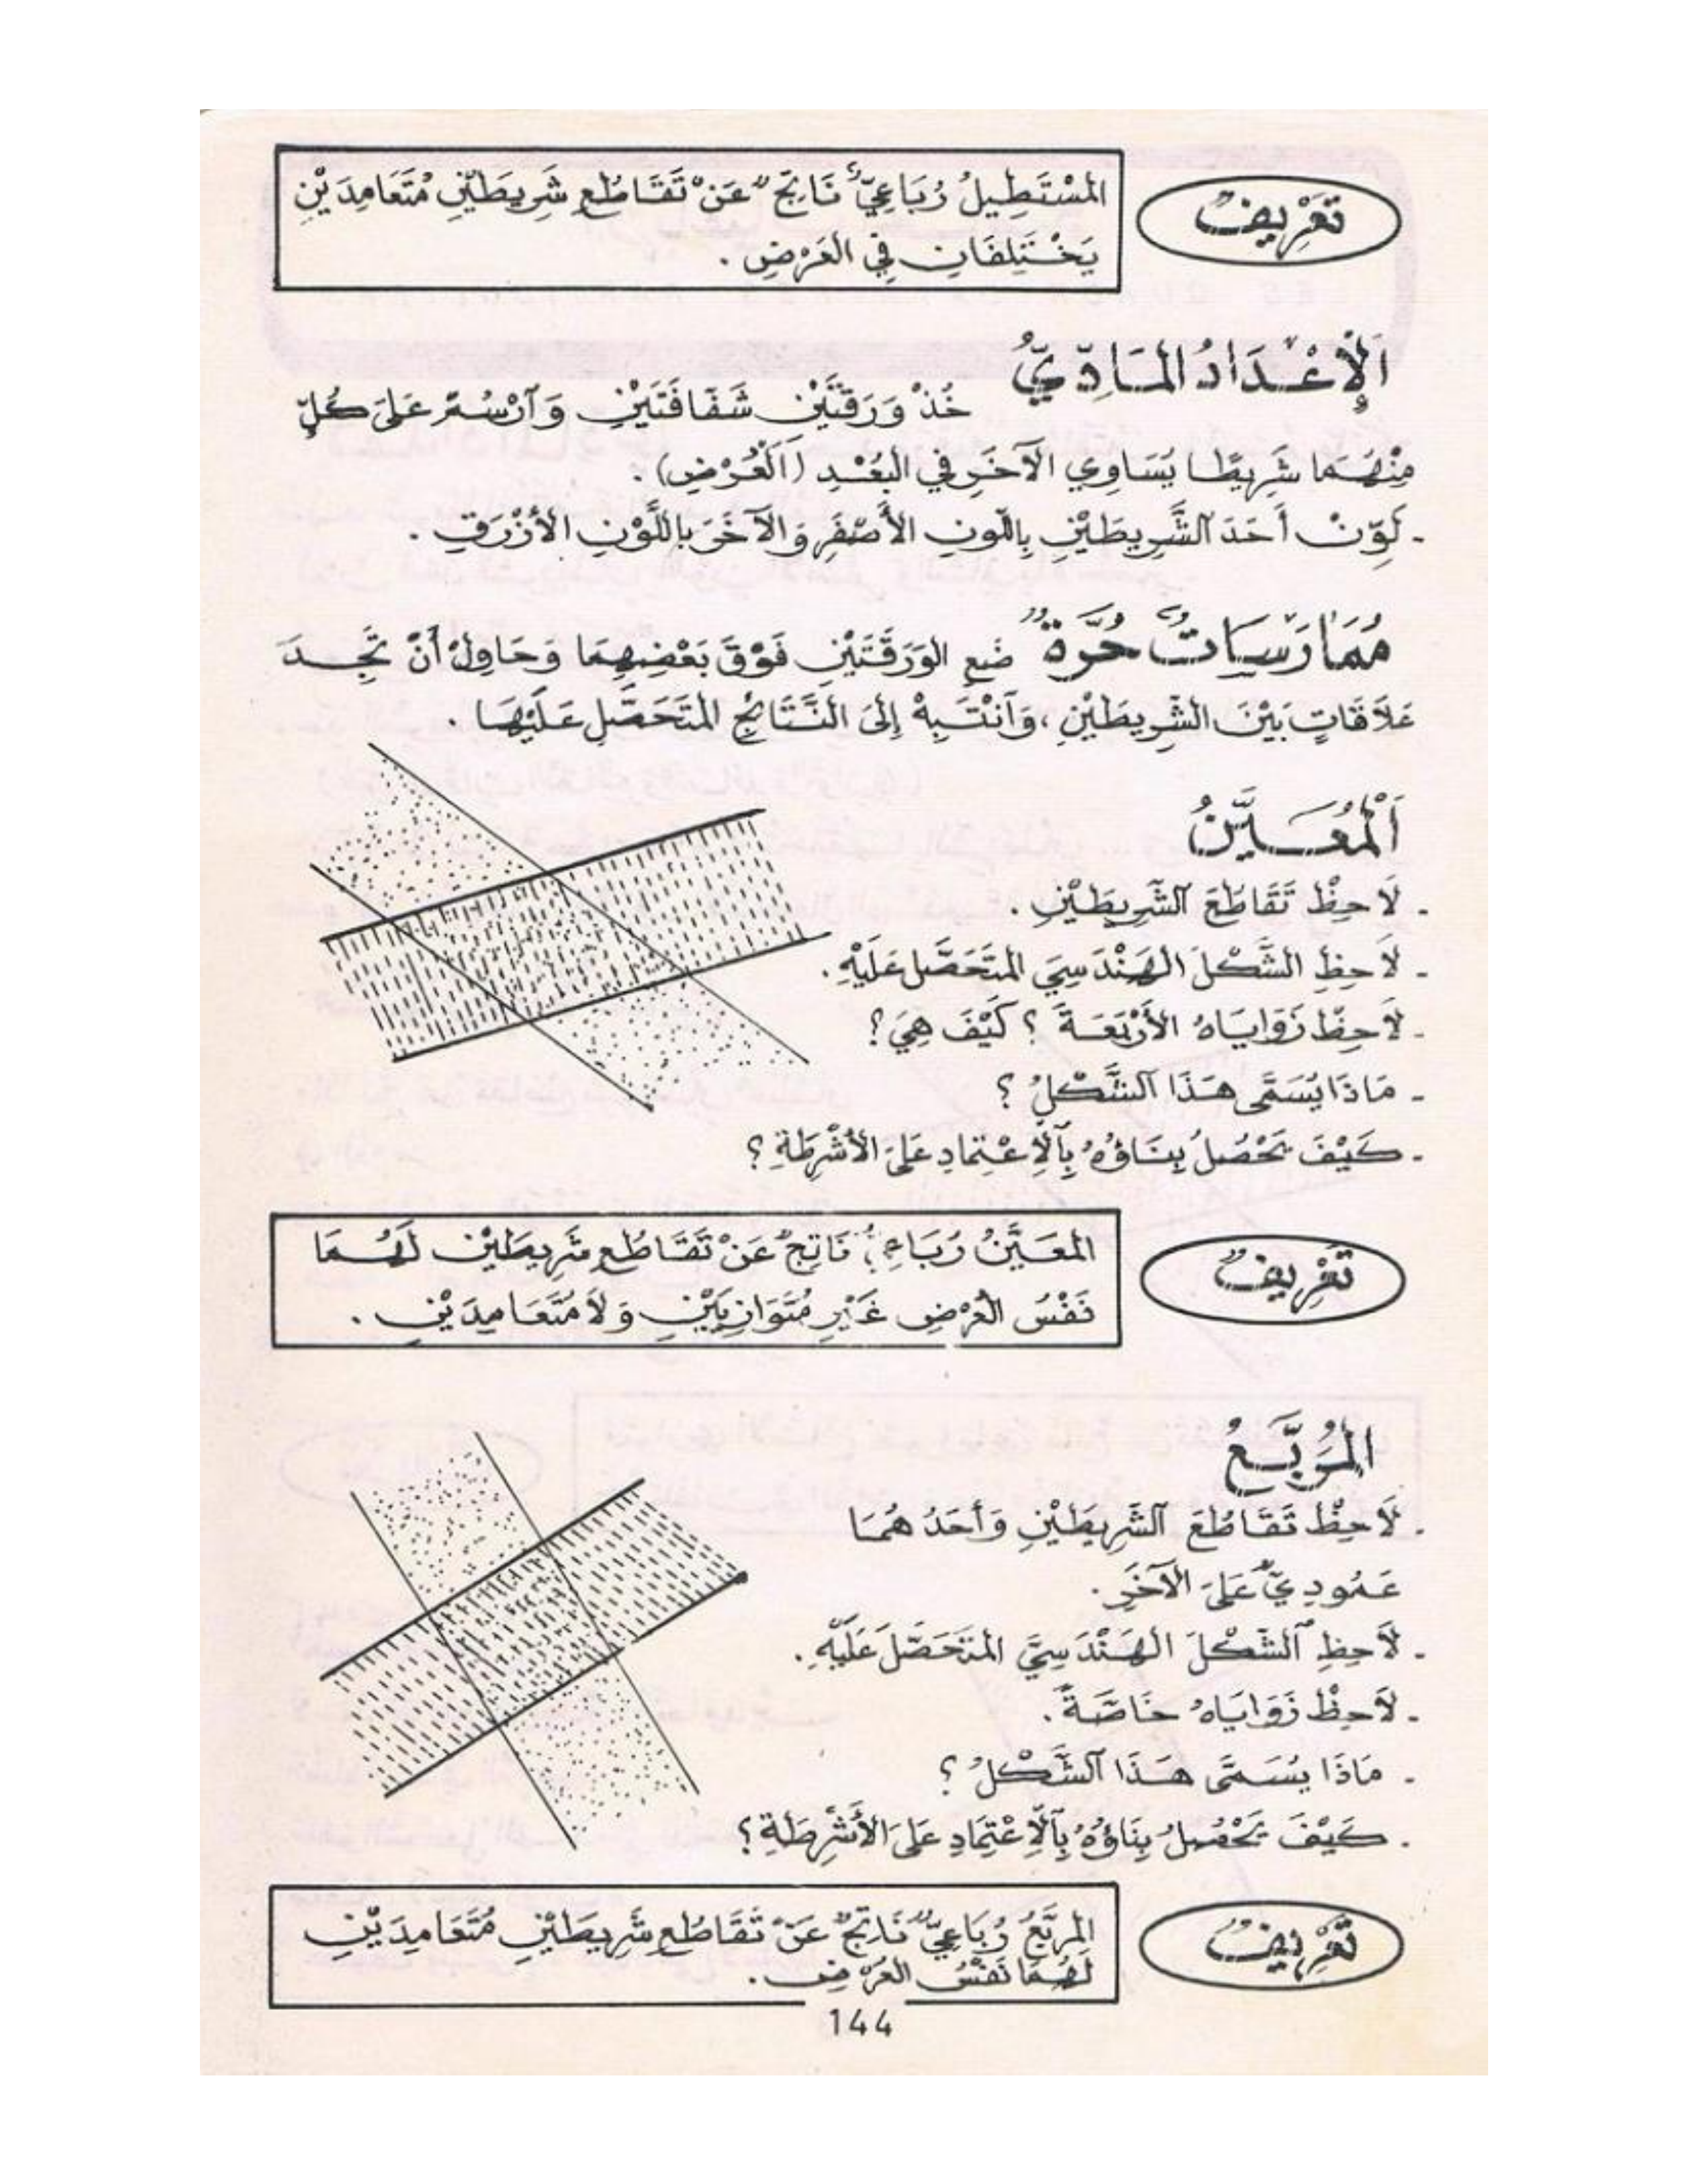 تَعْرِيفٌ
المُسْتَطِيلُ رُبَاعِيٌّ نَاتِجٌ عَنْ تَقَاطُعِ شَرِيطَيْنِ مُتَعَامِدَيْنِ
يَخْتَلِفَانِ فِي العَرْضِ .
اَلْإِعْدَادُ المَادِّيُّ خُذْ وَرَقَتَيْنِ شَفَّافَتَيْنِ وَآرْسُمْ عَلَى كُلٍّ
مِنْهُمَا شَرِيطًا يُسَاوِي الآخَرِ فِي البُعْدِ (اَلْعُرْضِ) .
- لَوِّنْ أَحَدَ آلشَّرِيطَيْنِ بِاللَّونِ الأَصْفَرِ وَالآخَرَ بِاللَّوْنِ الأَزْرَقِ .
مُمَارَسَاتٌ حُرَّةٌ ضَعِ الوَرَقَتَيْنِ فَوْقَ بَعْضِهِمَا وَحَاوِلْ أَنْ تَجِدَ
عَلاَقَاتٍ بَيْنَ الشَّرِيطَيْنِ ، وَآنْتَبِهْ إِلَى النَّتَائِجِ المُتَحَصَّلِ عَلَيْهَا .
اَلْمُعَيَّنُ
- لاَحِظْ تَقَاطُعَ آلشَّرِيطَيْنِ .
- لاَحِظِ الشَّكْلَ الهَنْدَسِيَّ المُتَحَصَّل عَلَيْهِ .
- لاَحِظْ زَوَايَاهُ الأَرْبَعَةَ ؟ كَيْفَ هِيَ ؟
- مَاذَا يُسَمَّى هَذَا آلشَّكْلُ ؟
- كَيْفَ يَحْصُلُ بِنَاؤُهُ بِآلْاِعْتِمَادِ عَلَى الأَشْرِطَةِ ؟
تَعْرِيفٌ
المُعَيَّنُ رُبَاعِيٌّ نَاتِجٌ عَنْ تَقَاطُعِ شَرِيطَيْنِ لَهُمَا
نَفْسُ العُرْضِ غَيْرِ مُتَوَازِيَيْنِ وَلاَ مُتَعَامِدَيْنِ .
المُرَبَّعُ
- لاَحِظْ تَقَاطُعَ آلشَّرِيطَيْنِ وَأَحَدُهُمَا
عَمُودِيٌّ عَلَى الآخَرِ .
- لاَحِظِ آلشَّكْلَ الهَنْدَسِيَّ المُتَحَصَّلَ عَلَيْهِ .
- لاَحِظْ زَوَايَاهُ خَاصَّةً .
- مَاذَا يُسَمَّى هَذَا آلشَّكْلُ ؟
- كَيْفَ يَحْصُلُ بِنَاؤُهُ بِآلْاِعْتِمَادِ عَلَى الأَشْرِطَةِ ؟
تَعْرِيفٌ
المُرَبَّعُ رُبَاعِيٌّ نَاتِجٌ عَنْ تَقَاطُعِ شَرِيطَيْنِ مُتَعَامِدَيْنِ
لَهُمَا نَفْسُ العُرْضِ .
144